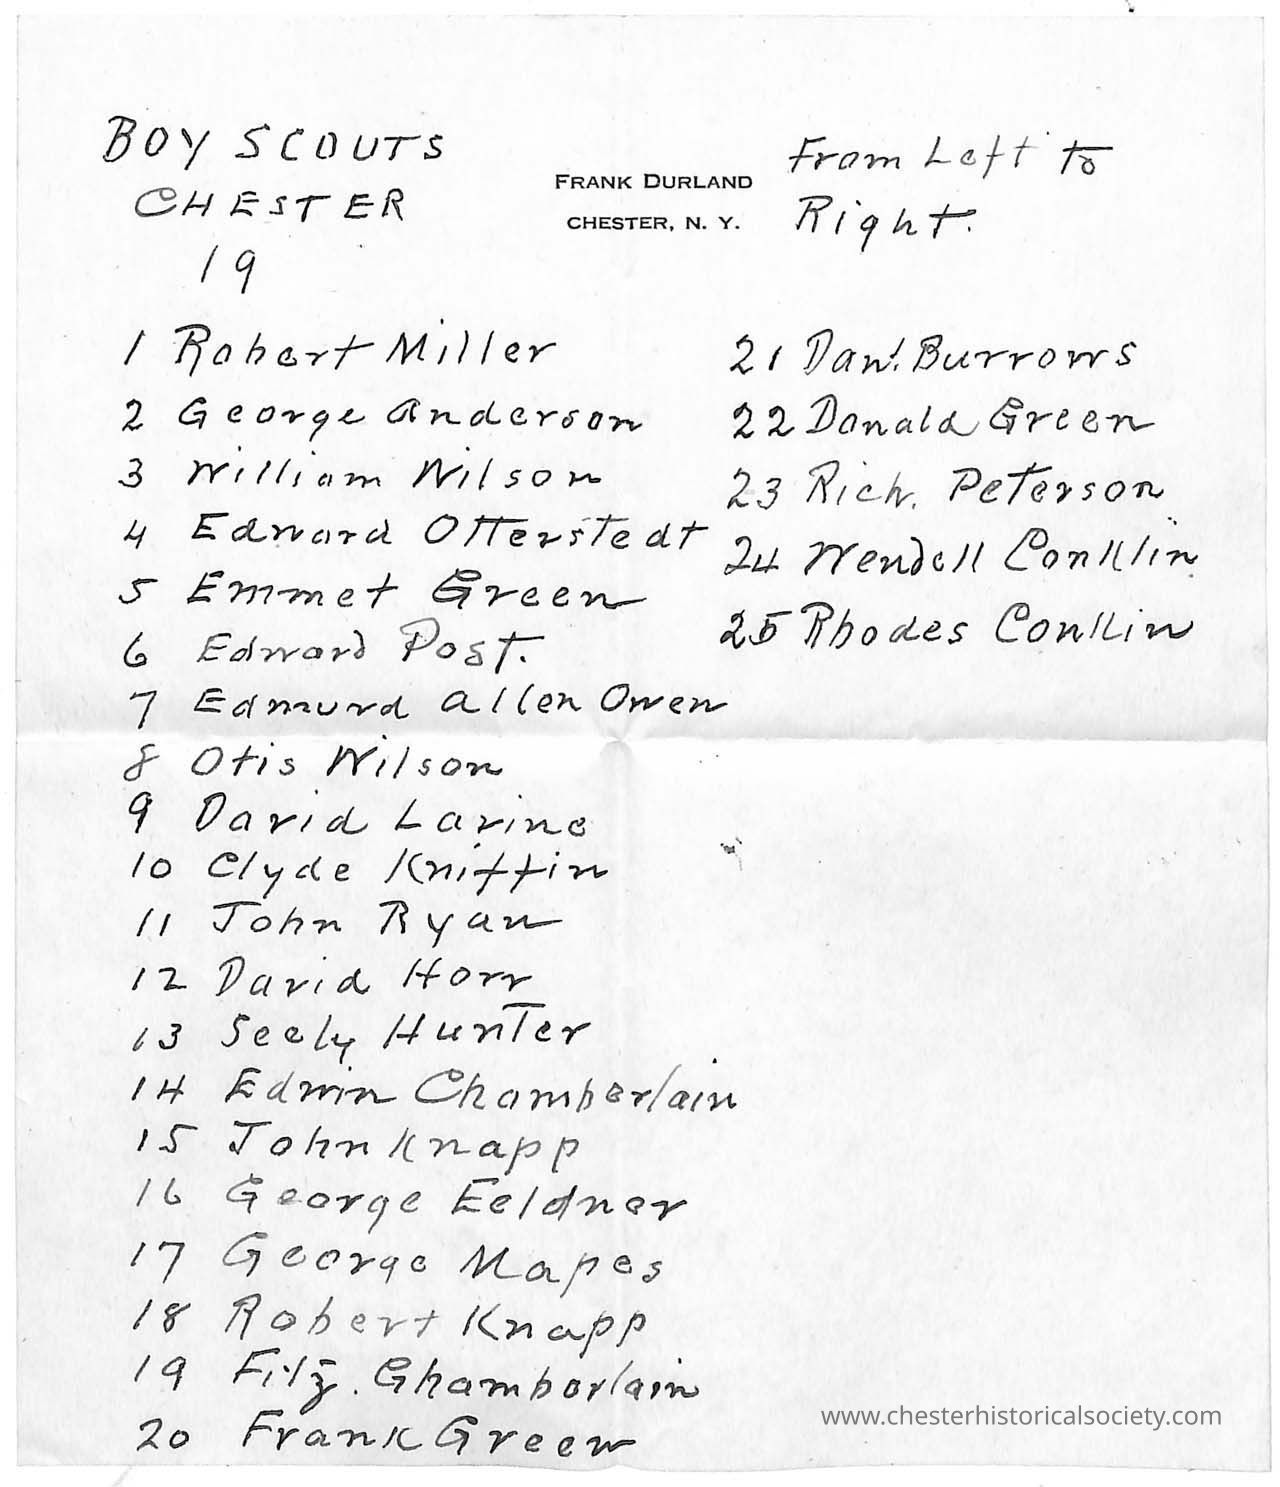 BOY SCOUTS
CHESTER
19
FRANK DURLAND
CHESTER, N. Y.
From Left to
Right.
1 Robert Miller
2 George Anderson
3 William Wilson
4 Edward Otterstedt
5 Emmet Green
6 Edward Post.
7 Edmund Allen Owen
8 Otis Wilson
9 David Lavine
10 Clyde Kniffin
11 John Ryan
12 David Horr
13 Seely Hunter
14 Edwin Chamberlain
15 John Knapp
16 George Eeldner
17 George Mapes
18 Robert Knapp
19 Fitz. Chamberlain
20 Frank Green
21 Danl. Burrows
22 Donald Green
23 Rich. Peterson
24 Wendell Conklin
25 Rhodes Conklin
www.chesterhistoricalsociety.com